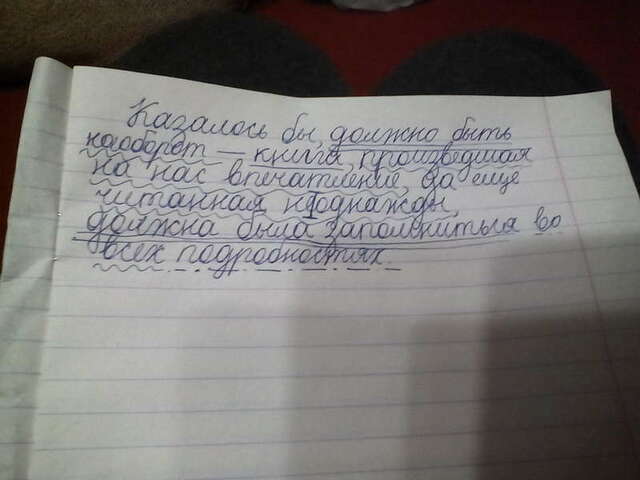 Казалось бы, должно быть
наоборот — книга, произведшая
на нас впечатление, да еще
читанная неоднажды,
должна была запомниться во
всех подробностях.